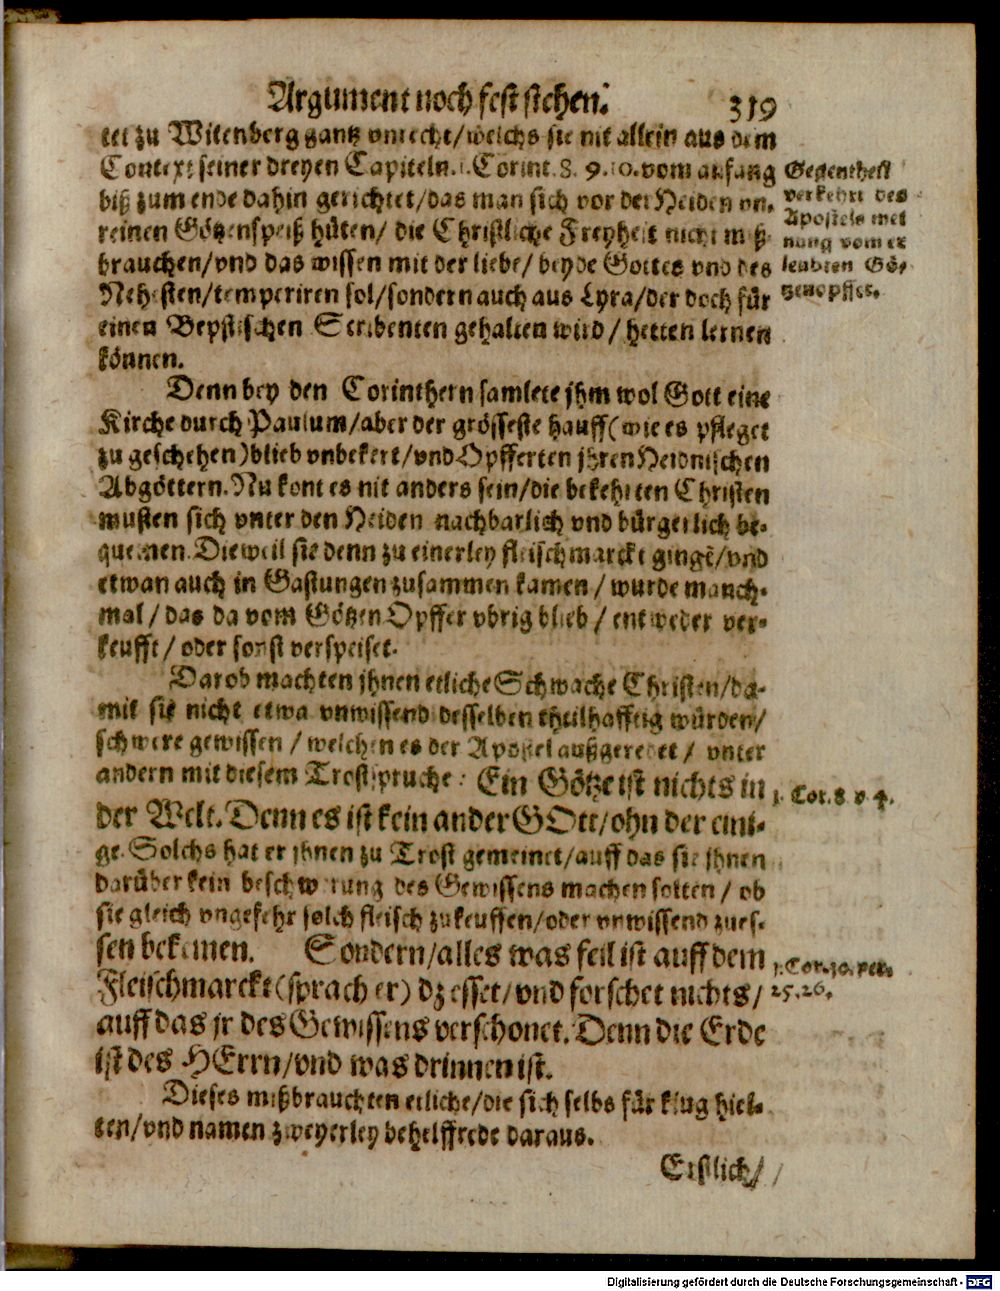 Argument noch fest stehen. 319
tet zu Witenberg gantz vnrecht/welchs sie nit allein aus dem
Context seiner dreyen Capiteln. 1. Corint. 8. 9. 10. vom anfang
biß zum ende dahin gerichtet/das man sich vor der Heiden vn-
reinen Götzenspeiß hüten/ die Christliche Freyheit nicht miß-
brauchen/vnd das wissen mit der liebe/ beyde Gottes vnd des
Nehesten/temperiren sol/sondern auch aus Lyra/der doch für
einen Bepstischen Scribenten gehalten wird/ hetten lernen
können.
Gegentheil
verkehrt des
Apostels mei
nung vom er
leubten Gö-
tzenopffer.
Denn bey den Corinthern samlete jhm wol Gott eine
Kirche durch Paulum/aber der grösseste hauff (wie es pfleget
zu geschehen) blieb vnbekert/vnd Opfferten jhren Heidnischen
Abgöttern. Nu kont es nit anders sein/die bekehrten Christen
musten sich vnter den Heiden nachbarlich vnd bürgerlich be-
quemen. Dieweil sie denn zu einerley fleischmarckt gingē/vnd
etwan auch in Gastungen zusammen kamen / wurde manch-
mal / das da vom Götzen Opffer vbrig blieb / entweder ver-
keufft / oder sonst verspeiset.
Darob machten jhnen etliche Schwache Christen/da-
mit sie nicht etwa vnwissend desselben theilhafftig würden/
schwere gewissen / welchen es der Apostel außgeredet / vnter
andern mit diesem Trostspruche: Ein Götze ist nichts in
der Welt. Denn es ist kein ander GOtt/ohn der eini-
ge. Solchs hat er jhnen zu Trost gemeinet/auff das sie jhnen
darüber kein beschwerung des Gewissens machen solten / ob
sie gleich vngefehr solch fleisch zu keuffen/oder vnwissend zu es-
sen bekemen. Sondern/alles was feil ist auff dem
Fleischmarckt (sprach er) dz esset/vnd forschet nichts/
auff das jr des Gewissens verschonet. Denn die Erde
ist des HErrn/vnd was drinnen ist.
1. Cor. 8 v 4.
1. Cor. 10. ver.
25. 26.
Dieses mißbrauchten etliche/die sich selbs für klug hiel-
ten/vnd namen zweyerley behelffrede daraus.
Erstlich/
Digitalisierung gefördert durch die Deutsche Forschungsgemeinschaft - DFG